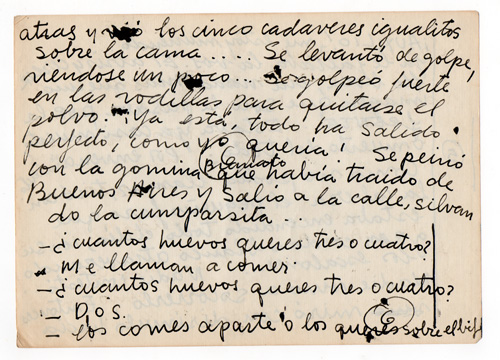 atras y vió los cinco cadaveres igualitos
sobre la cama..... Se levantó de golpe,
riendose un poco... Se golpeó fuerte
en las rodillas para quitarse el
polvo. Ya está, todo ha salido
perfecto, como yo queria! Se peinó
con la gomina Brancato que habia traido de
Buenos Aires y salió a la calle, silvan
do la cumparsita...
- ¿cuantos huevos queres tres o cuatro?
Me llaman a comer.
- ¿cuantos huevos queres tres o cuatro?
- Dos.
- Los comes aparte o los queres sobre el bife